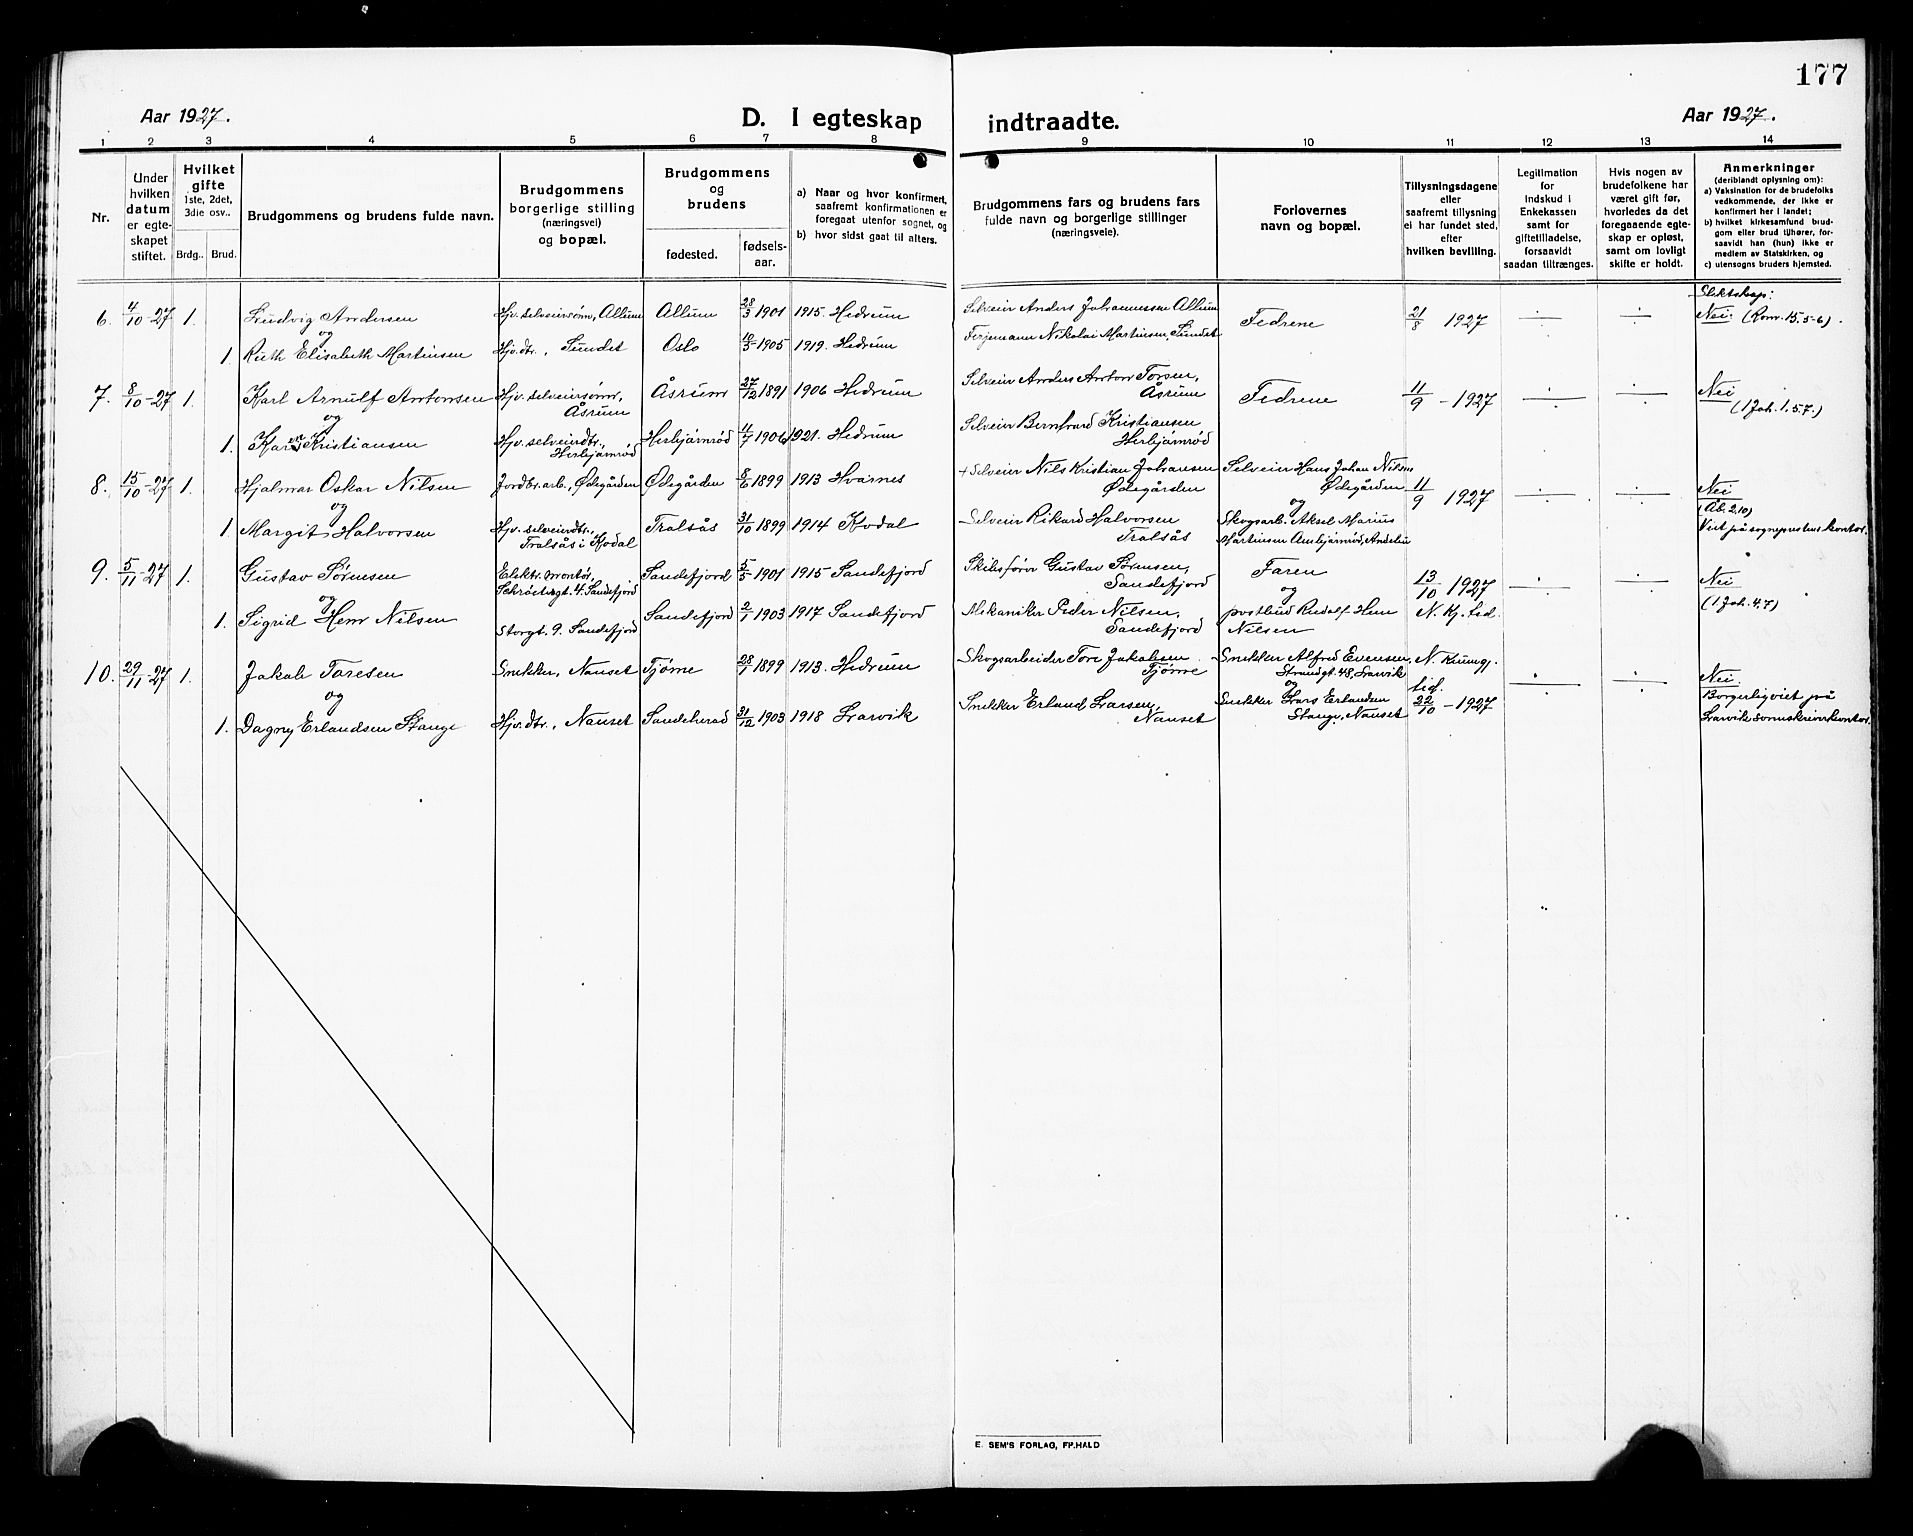 177
Aar 1927.
D. I egteskap indtraadte.
Aar 1927.
1 2 3 4 5 6 7 8 9 10 11 12 13 14
Nr.
Under hvilken datum er egteskapet stiftet.
Hvilket gifte 1ste, 2det, 3die osv..
Brdg.. Brud.
Brudgommens og brudens fulde navn.
Brudgommens borgerlige stilling (næringsvei) og bopæl.
Brudgommens og brudens
fødested. fødselsaar.
a) Naar og hvor konfirmert, saafremt konfirmationen er foregaat utenfor sognet, og
b) hvor sidst gaat til alters.
Brudgommens fars og brudens fars fulde navn og borgerlige stillinger (næringsveie).
Forlovernes navn og bopæl.
Tillysningsdagene eller saafremt tillysning ei har fundet sted, efter hvilken bevilling.
Legitimation for Indskud i Enkekassen samt for giftetilladelse, forsaavidt saadan tiltrænges.
Hvis nogen av brudefolkene har været gift før, hvorledes da det foregaaende egteskap er opløst, samt om lovligt skifte er holdt.
Anmerkninger (deriblandt oplysning om):
a) Vaksination for de brudefolks vedkommende, der ikke er konfirmert her i landet;
b) hvilket kirkesamfund brudgom eller brud tilhører, forsaavidt han (hun) ikke er medlem av Statskirken, og
c) utensogns bruders hjemsted.
6. 4/10-27 1. Ludvig Andersen Hjv. selveiersønn, Allum Allum 28/3 1901 1915 Hedrum Selveier Anders Johannessen Allum Fedrene 21/8 1927 Slektskap: Nei. (Rom. 15.5-6).
og
1. Ruth Elisabeth Martinsen Hjv. dtr., Sundet Oslo 10/3-1905 1919 Hedrum Ferjemann Nikolai Martinsen, Sundet
7. 8/10-27 1. Karl Arnulf Antonsen Hjv. selveiersønn, Åsrum Åsrum 27/12 1891 1906 Hedrum Selveier Anders Anton Torsen, Åsrum Fedrene 11/9-1927 Nei (1 Joh. 1.57.)
og
1. Kristiansen Hjv. selveierdtr., Herbjørnrød Herbjørnrød 11/7 1906 1921. Hedrum Selveier Bernhard Kristiansen Herbjørnrød
8. 15/10-27 1. Hjalmar Oskar Nilsen Jordbr. arb., Ødegården Ødegården 8/6 1899 1913 Hvarnes + Selveier Nils Kristian Johansen Ødegården Selveier Hans Johan Nilsen Ødegården 11/9 1927 Nei (Åb. 2.10)
og og
1. Margit Halvorsen Hjv. selveierdtr., Trolsås i Kodal Trolsås 31/10 1899 1914 Kodal Selveier Rikard Halvorsen Trolsås Skogsarb. Aksel Marius Martinsen Andebu Viet på sogneprestens kontor.
9. 5/11-27 1. Gustav Sørensen Elektr. montør, Schrøtersgt. 4. Sandefjord Sandefjord 5/5 1901 1915 Sandefjord Skibsfører Gustav Sørensen, Sandefjord Faren 13/10 1927 Nei (1 Joh. 4.7)
og og
1. Sigrid Hem Nilsen Storgt. 9. Sandefjord Sandefjord 2/1 1903 1917 Sandefjord Mekaniker Peder Nilsen, Sandefjord postbud Rudolf Hem Nilsen N. Kj. tid.
10. 29/11-27 1. Jakob Toresen Snekker, Nanset Tjøme 28/1 1899 1913 Hedrum Skogsarbeider Tore Jakobsen Tjøme Snekker Alfred Evensen, Strandgt. 48, Larvik N. Kunngj. tid. Nei.
og og
1. Dagny Erlandsen Stange Hjv. dtr., Nanset Sandeherad 31/12 1903 1918 Larvik Snekker Erland Larsen, Nanset Snekker Lars Erlandsen Stange, Nanset 22/10-1927 Borgerlig viet på Larvik sorenskriverkontor.
E. SEM'S FORLAG, FR.HALD